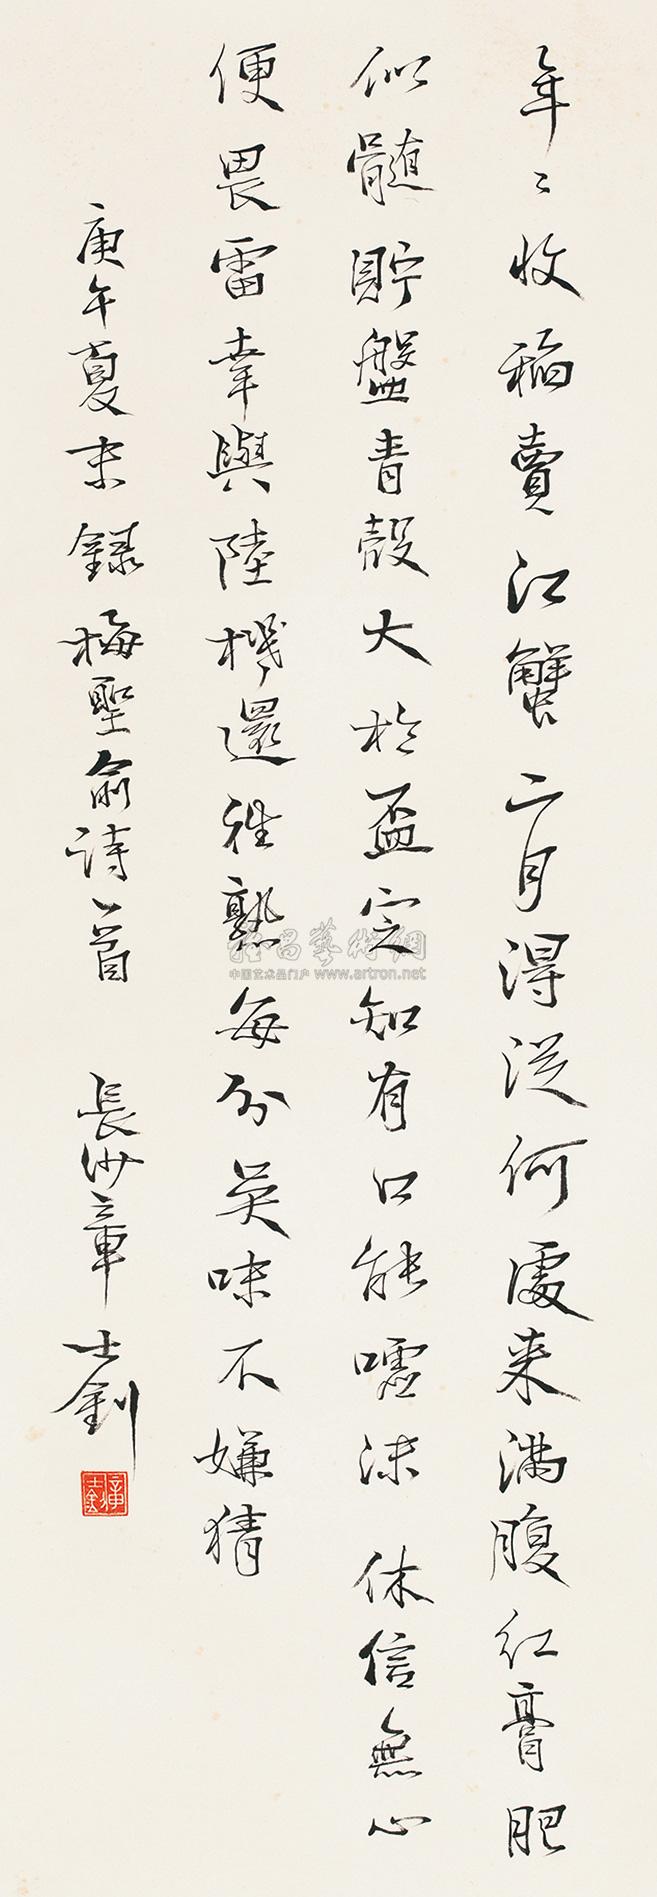 年〻收稻賣江蟹二月得從何處来滿腹紅膏肥
似髓貯盤青殼大於盃定知有口能噓沫休信無心
便畏雷幸與陸機還往熟每分美味不嫌猜
庚午夏末錄梅聖俞詩一首 長沙章士釗
章士釗
雅昌藝術網
中国艺术品门户 www.artron.net